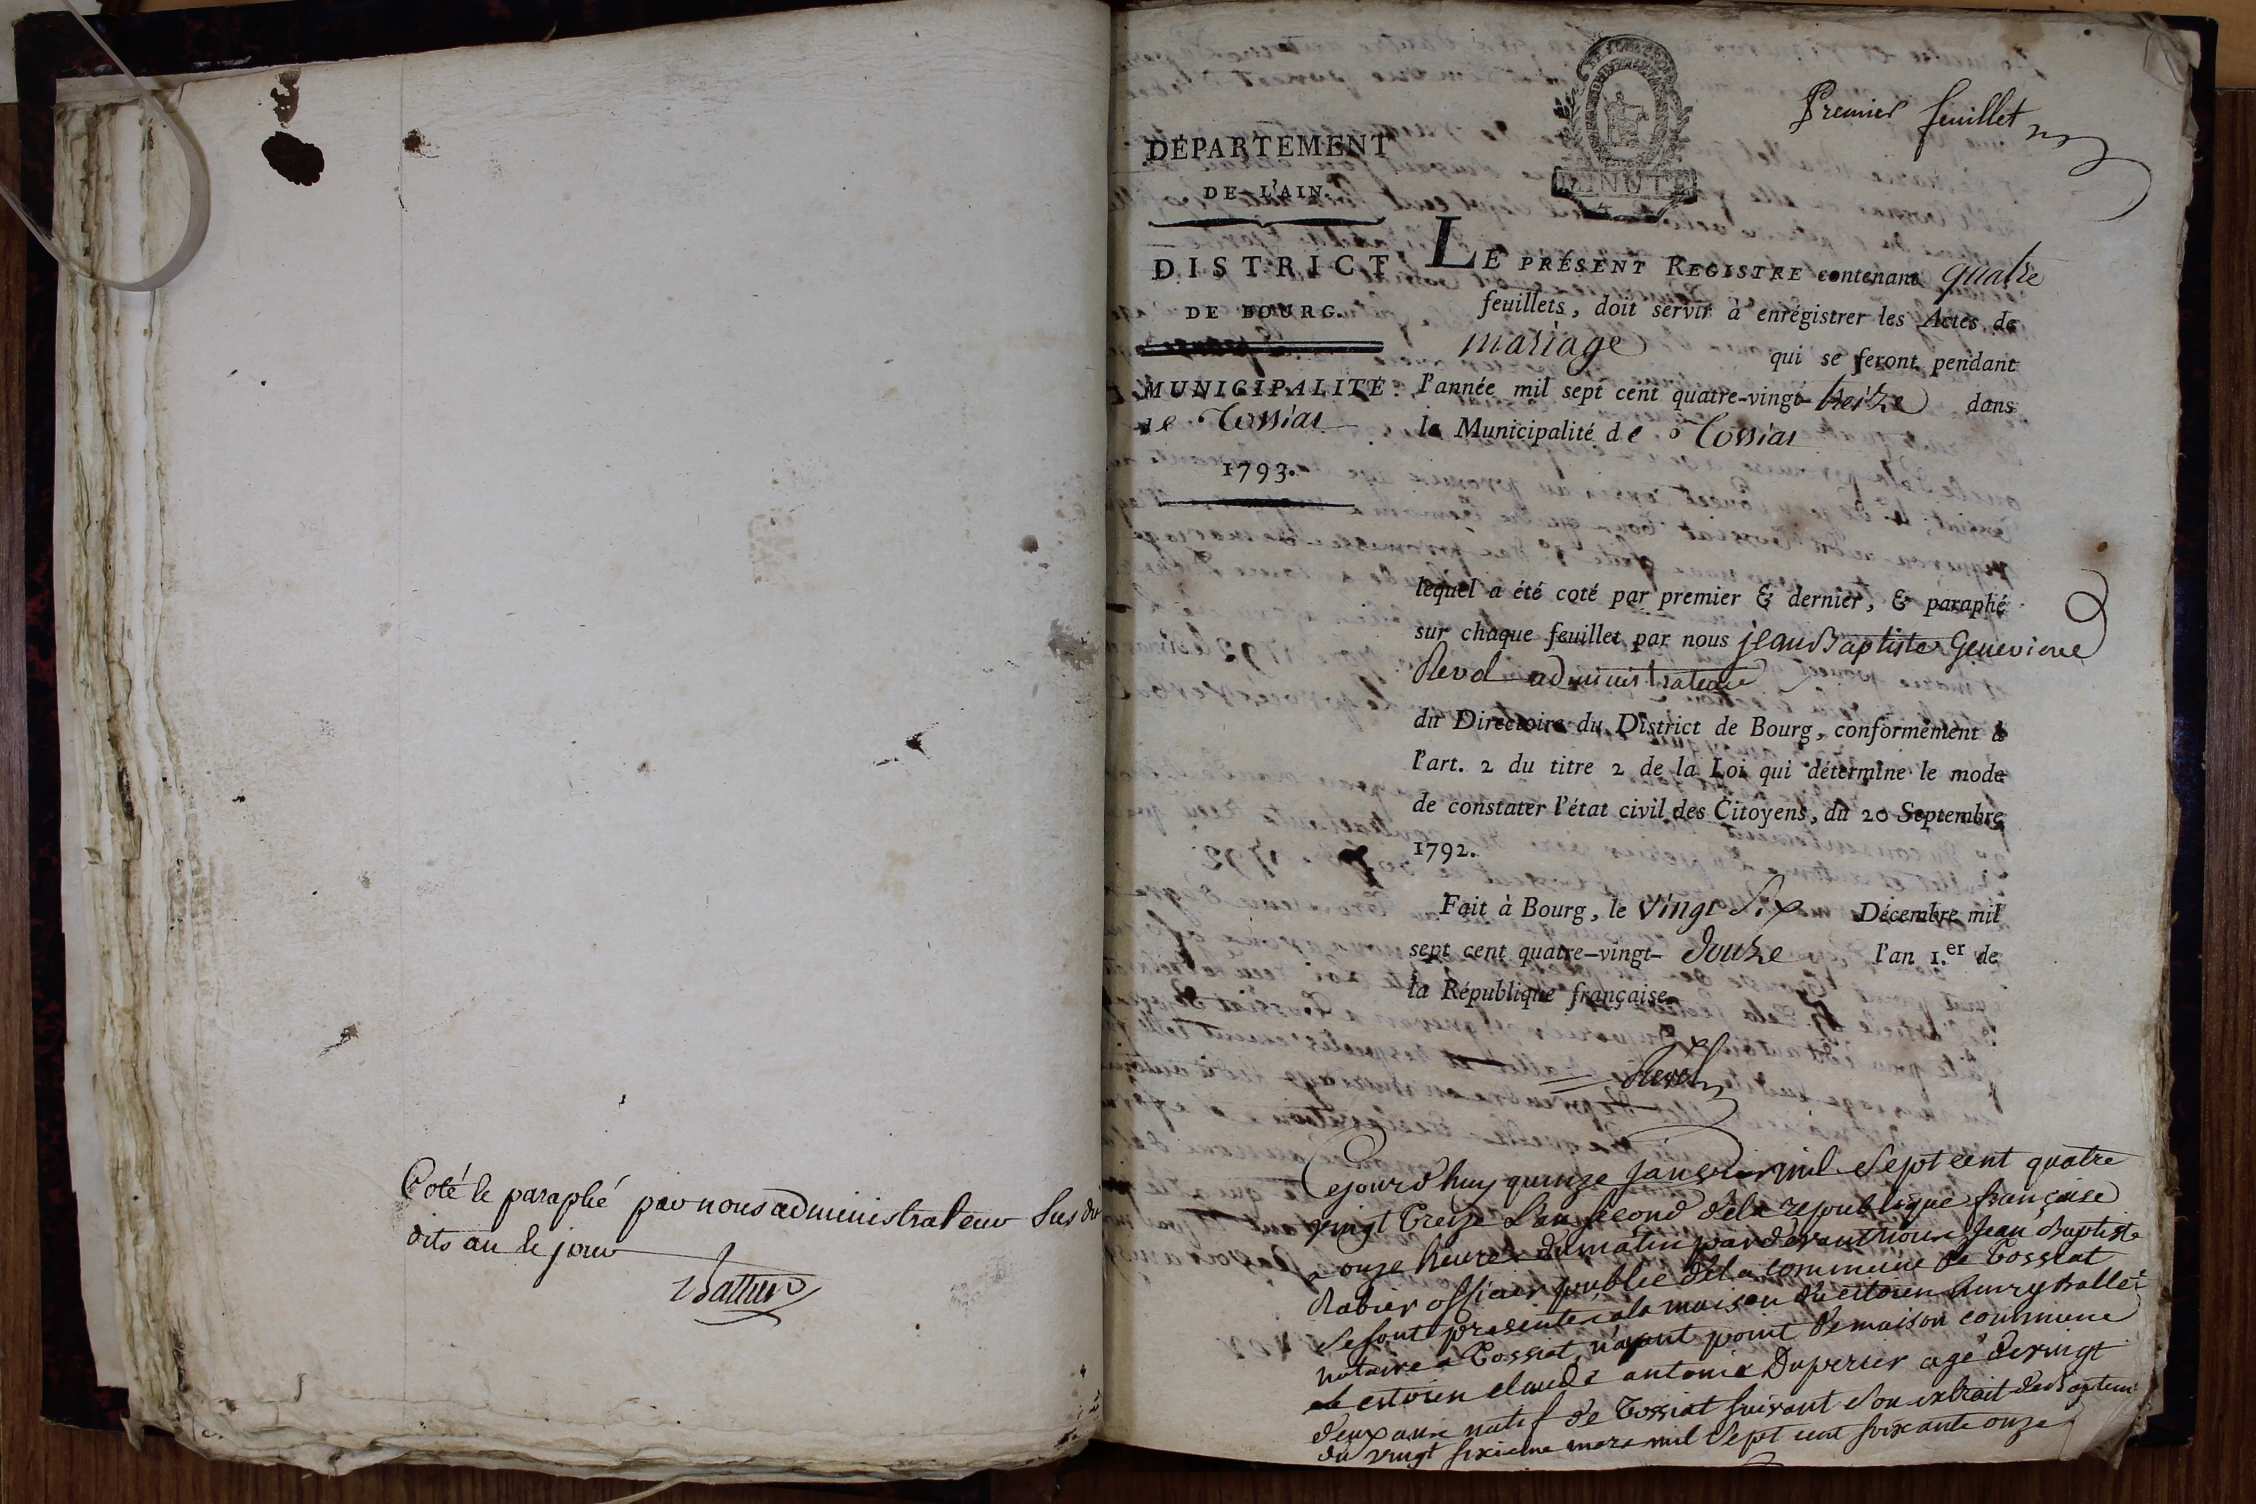 Coté le paraphé par nous administrateur Sus
dits an le jour
Battur
Premier feuillet
DÉPARTEMENT
DE L'AIN.
DISTRICT
DE BOURG.
MUNICIPALITÉ
de Tossiat
1793.
MINUTE
4
LE PRÉSENT REGISTRE contenant quatre
feuillets, doit servir à enrégistrer les Actes de
mariage qui se feront pendant
l'année mil sept cent quatre-vingt-treize dans
la Municipalité de Tossiat
lequel a été coté par premier & dernier, & paraphé
sur chaque feuillet par nous jean Baptiste Genevieve
Revol administrateur
du Directoire du District de Bourg, conformément à
l'art. 2 du titre 2 de la Loi qui détermine le mode
de constater l'état civil des Citoyens, du 20 Septembre
1792.
Fait à Bourg, le vingt Six Décembre mil
sept cent quatre-vingt- douze l'an 1.er de
la République française.
Revol
Cejourd'huy quinze janvier mil Sept cent quatre
vingt treize L'an second dela republique françoise
a onze heures du matin par devant nous Jean Baptiste
Rabier officier publie dela commune de Tossiat
Se sont presentes ala maison du citoien Amry Ballet
notaire a Tossiat, n'ayant point de maison commune
le citoien claude antoine Duperier agé de vingt
deux ans natif de Tossiat suivant Son extrait de Bapteme
du vingt sixieme mars mil Sept cent soixante onze